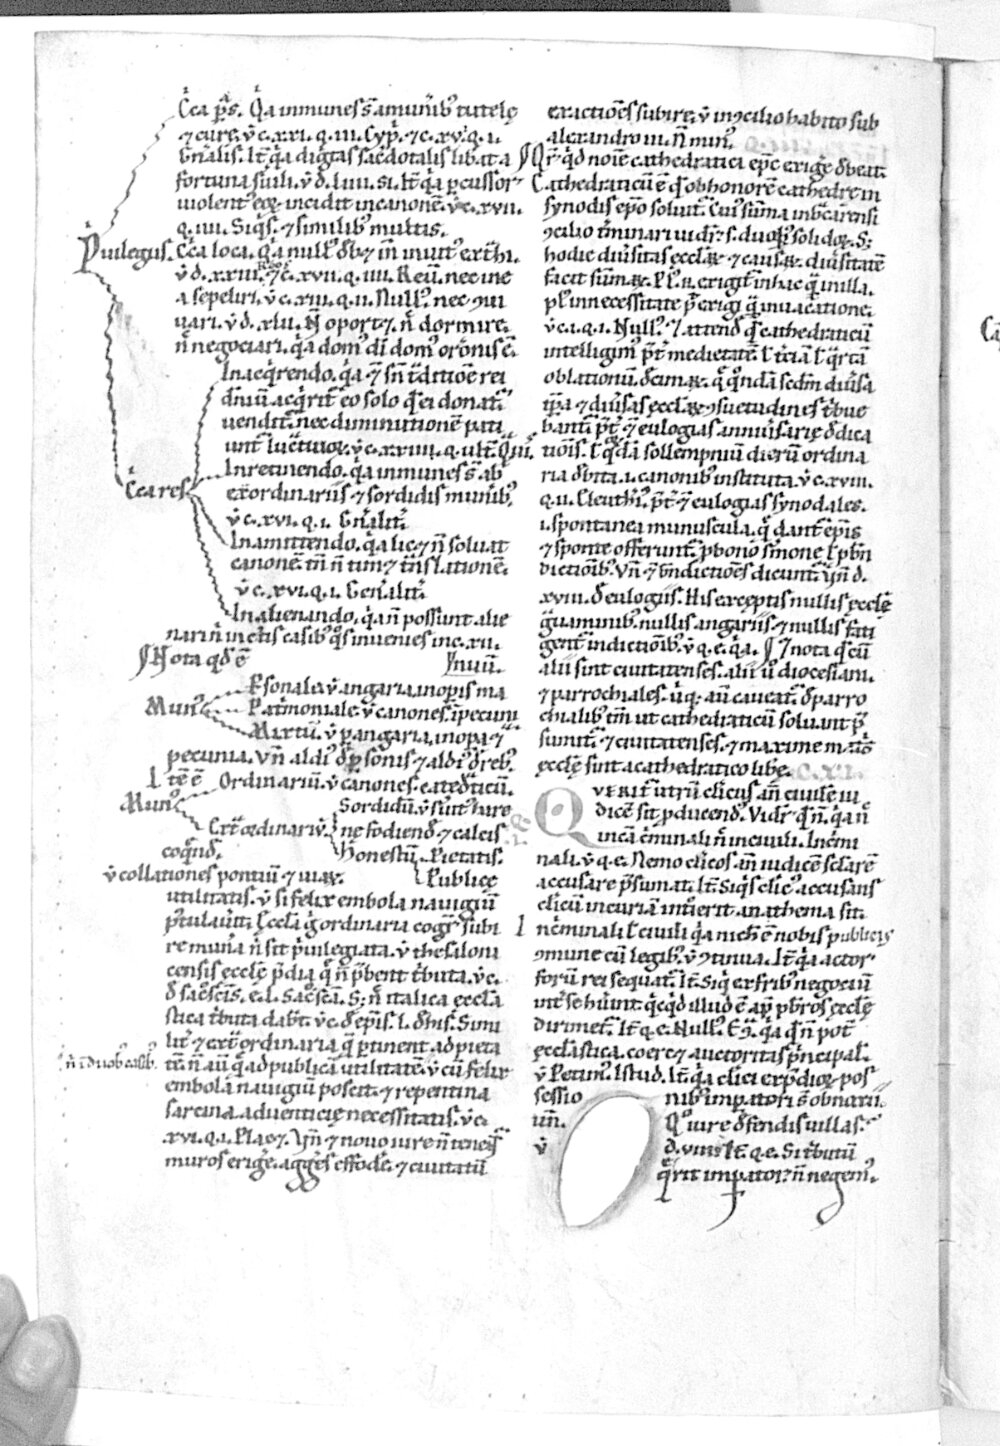 C̄ca p̄s. Qͥa inmunes s̄t a munīb᷒ tutelę
⁊ curę. v̄ c. xxi. q. iii. Cyp̄. ⁊ c. xv. q. i.
Gn̄alis. It̄ qͥa dig̅tas sac̄dotalis libat a
fortuna s̄uili. v̄ d. liiii. Si. It̄ qͥa p̱cussor
uiolent᷒ eoꝝ incidit in canonē. v̄ c. xvii.
q. iiii. Siqͥs. ⁊ similib᷒ multas.
P̲uilegiis. C̄ca loca. qͥa null᷒ db̄⁊ īn inuit᷒ ext̄hi.
v̄ d. xxiii. ⁊ c. xvii. q. iiii. Reū. nec ine
a sepeliri. v̄ c. xiii. q. ii. Null᷒. nec ꝯui
uari. v̄ d. xlii. N̄ oport⁊. n̄ dormire.
n̄ negociari. qͥa dom᷒ dī dom᷒ orōnis ē.
In acq̄rendo. qͥa ⁊ sn̄ t̄ditiōe rei
dn̄iū acq̄rit᷑ eo solo qͥ ei donat᷑
uendit᷑. nec diminutionē pati
unt᷑ luc̄tiuoꝝ. v̄ c. xxiiii. q. ult̄. Qui.
C̄ca res
In retinendo. qͥa inmunes s̄t ab
ext̄ordinariis ⁊ sordidis munib᷒.
v̄ c. xvi. q. i. Gn̄alit᷑.
In amittendo. qͥa lic⁊ n̄ soluat
canonē. tn̄ n̄ tim⁊ t̄nslationē.
v̄ c. xvi. q. i. Gen̄alit᷑.
In alienando. qͥa n̄ possunt alie
nari n̄ in c̄tis casib᷒ qͦs inuenies in c. xii.
¶ Nota qd̄ ē
Mun᷒
P̱sonale. v̄ angaria. in op̱is ma
nuū.
Pat̄moniale. v̄ canones. ī pecuni
Mixtū. v̄ p̱angaria. in op̱a ⁊
pecunia. Vn̄ aldi᷑ p̱sonis ⁊ aldi᷑ reb᷒.
Itē ē
Mun᷒
Ordinariū. v̄ canones. ca⁊ed̄ticū.
Ext̄ordinariū.
Sordidū. v̄ sūt hare
ne fodiend̄ ⁊ calcis
coq̄nd̄.
Honestū. Pietatis.
Publicę
v̄ collationes pontiū ⁊ uiaꝝ.
utilitatis. v̄ si felix embola nauigiū
p̄tulaūit. Eccl̄a gͦ ordinaria cogit᷑ subi
re mun̄a n̄ sit p̲uilegiata. v̄ thesaloni
censis ecclę p̄dia. q̄ n̄ p̄bent t̄buta. v̄ c.
d̄ sac̄sc̄is. e. l. Sac̄sc̄a. S; n̄ italica eccl̄a
stica t̄buta dab̄t. v̄ c. d̄ ep̄is. l. d̄ his. Simi
lit᷑ ⁊ ext̄ordinaria q̄ p̱tinent ad pieta
n̄ ī duob᷒ casib᷒.
tē. n̄ aū q̄ ad publicā utilitatē. v̄ cū felix
embola nauigiū poscit. ⁊ repentina
sarcina. aduenticię necessitatis. v̄ c.
xvi. q. i. Plac⁊. Ħn̄ ⁊ nouo iure n̄ tenet᷑
muros erigē. agḡes effodē. ⁊ ciuitatū
exactiōes subire. v̄ in ꝯcilio habito sub
alexandro iii. n̄ min᷒.
¶ Qr̄. qd̄ noīe cathedratici ep̄c erigē d̄beat.
Cathedraticū ē qͥ ob honorē cathedrę in
synodis ep̄o soluit᷑. Cui᷒ sūma in bͣcarensi
ꝯcilio t̄minari uidet᷑. s. duoꝝ solidoꝝ. S;
hodie diuīsitas eccl̄aꝝ ⁊ causaꝝ. diuīsitatē
facit sūmaꝝ. Pl᷒. n̄. erigit᷑ in hac q̄ in illa.
pl᷒ in necessitate p̄t erigi q̄ in uacatione.
v̄ c. i. q. i. Null᷒. ⁊ attend̄ qͥ cathedraticū
intelligim᷒ p̄t᷑ medietatē l̄ t̄ciā l̄ qͣrtā
oblationū. decimaꝝ. q̄ qͦndā scdm̄ diuīsa
tp̄a ⁊ diuīsas eccl̄aꝝ ꝯsuetudines t̄bue
bant᷑. p̄t᷑ ⁊ eulogias anniuīsarię dedica
tiōis. l̄ qͦꝛdā sollempniū dierū ordina
ria d̄bita. i. canonib᷒ instituta. v̄ c. xviii.
q. ii. Eleuth̄i᷒. p̄t᷑ ⁊ eulogias synodales.
i. spontanea munuscula. q̄ dant᷑ ep̄is
⁊ sponte offerunt᷑. p̱ bono s̄mone l̄ p̱ bn̄
dictionib᷒. Vn̄ ⁊ bn̄dictiōes dicunt᷑. Ħn̄ d.
xviii. d̄ eulogiis. His exceptis nullis ecclę
ḡ̣uaminib᷒. nullis angariis. ⁊ nullis fati
gent᷑ indictiōib᷒. v̄ q. e. qͥa. ¶ ⁊ nota qͥ cū
alii sint ciuitatenses. alii u̅ diocesiani.
⁊ parrochiales. ūq; aū caueat᷑. d̄ parro
chialib᷒ tm̄ ut cathedraticū soluunt p̄
sumit᷑. ⁊ ciuitatenses. ⁊ maxime matͥs
ecclę sint a cathedratico libę. C. XI.
QVERIT᷑ utrū clic̄us añ ciuilē iu
dicē sit p̱ducend̄. Videt᷑ qͥ n̄. qͥa n̄
in cā c̄minali n̄ in ciuili. In c̄mi
nali. v̄ q. e. Nemo clicos añ iudicē sc̄larē
accusare p̄sumat. It̄ Siqͥs clic᷒ accusans
clicū in curiā int̄ierit. anathema sit.
n̄ c̄minali l̄ ciuili qͥa nich̄ ē nobis publicis
ꝯmune cū legib᷒. v̄ ꝯtinua. It̄ qͥa actor
forū rei sequat᷑. It̄ Siq̄ ex frib᷒ negociū
int᷑ se hūint. qͥcqͥd illud ē ap̄ p̄bros ecclę
dirimet᷑. It̄ q. e. Null᷒. Eꝯ. qͥa qͥ n̄ pot̄
eccl̄astica. coerc⁊ auctoritas p̲ncipal᷒.
v̄ Petim᷒. Istud. It̄ qͥa clici ex p̄dioꝝ pos
sessio nib᷒ imp̱atori s̄ obnoxii.
un̄. Qͦ iure d̄fendis uillas.
v̄ d. viii. It̄ q. e. Si t̄butū
q̄rit imp̱ator. n̄ negem᷒.